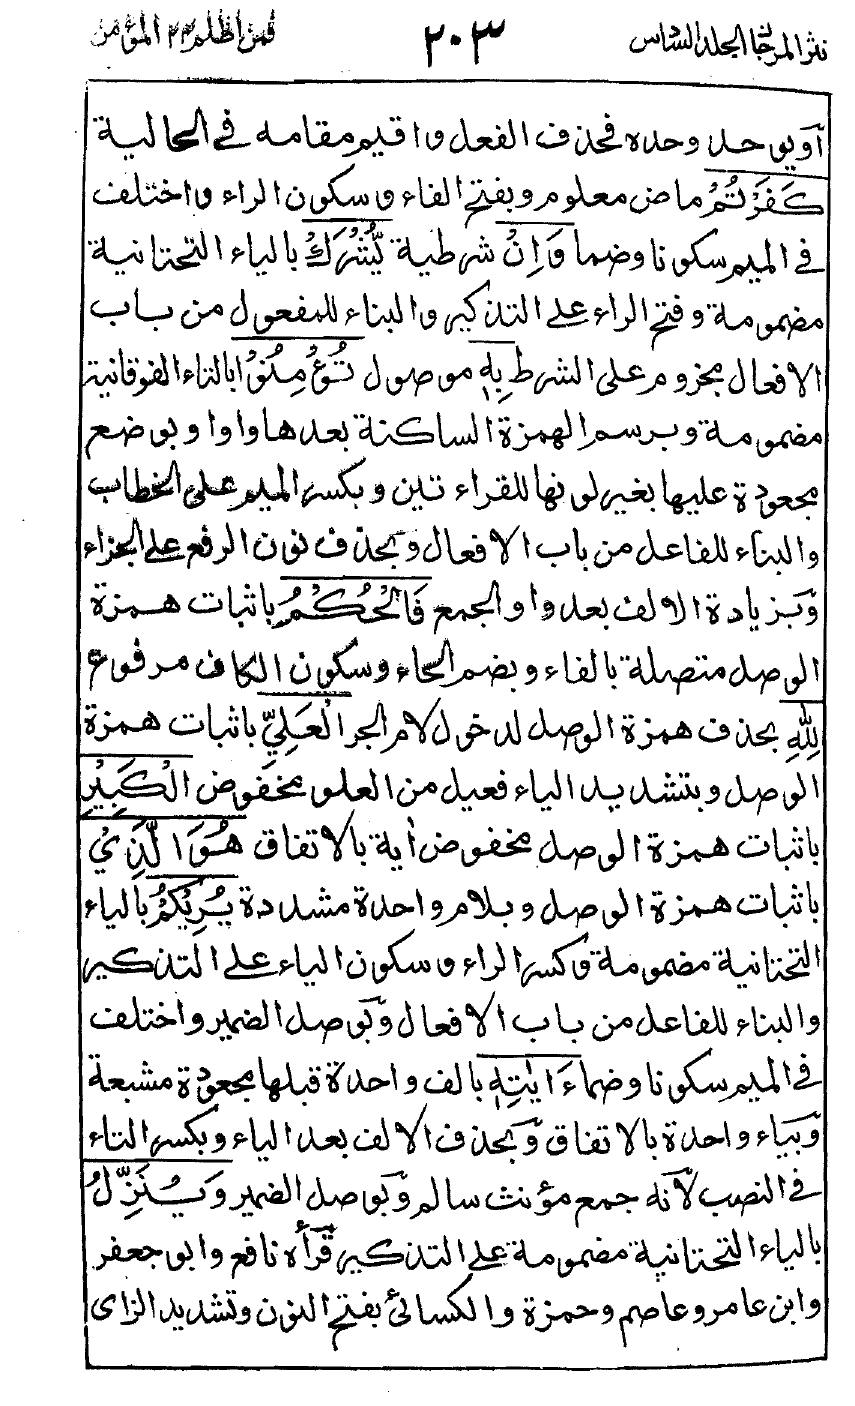 نثر المرجان الجلد السادس ٢٠٣ فمن اظلم ٢٤ المؤمن
أو يوحد وحده فحذف الفعل واقيم مقامه فى الحالية
كَفَرْتُمْ ماض معلوم وبفتح الفاء وسكون الراء واختلف
فى الميم سكونا وضما وَاِنْ شرطية يُّشْرَكْ بالياء التحتانية
مضمومة وفتح الراء على التذكير والبناء للمفعول من باب
الافعال مجزوم على الشرط بِهٖ موصول تُؤْمِنُوْا بالتاء الفوقانية
مضمومة وبرسم الهمزة الساكنة بعدها واوا وبوضع
مجعودة عليها بغير لونها للقراءتين وبكسر الميم على الخطاب
والبناء للفاعل من باب الافعال وبحذف نون الرفع على الجزاء
وبزيادة الالف بعد واو الجمع فَالْحُكْمُ باثبات همزة
الوصل متصلة بالفاء وبضم الحاء وسكون الكاف مرفوع
لِلّٰهِ بحذف همزة الوصل لدخول لام الجر الْعَلِيِّ باثبات همزة
الوصل وبتشديد الياء فعيل من العلو مخفوض الْكَبِيْرِ
باثبات همزة الوصل مخفوض أية بالاتفاق هُوَ الَّذِيْ
باثبات همزة الوصل وبلام واحدة مشددة يُرِيْكُمْ بالياء
التحتانية مضمومة وكسر الراء وسكون الياء على التذكير
والبناء للفاعل من باب الافعال وبوصل الضمير واختلف
فى الميم سكونا وضما ءَايٰتِهٖ بالف واحدة قبلها مجعودة مشبعة
وبياء واحدة بالاتفاق وبحذف الالف بعد الياء وبكسر التاء
فى النصب لأنه جمع مؤنث سالم وبوصل الضمير وَيُنَزِّلُ
بالياء التحتانية مضمومة على التذكير قرأه نافع وابو جعفر
وابن عامر وعاصم وحمزة والكسائى بفتح النون وتشديد الزاى